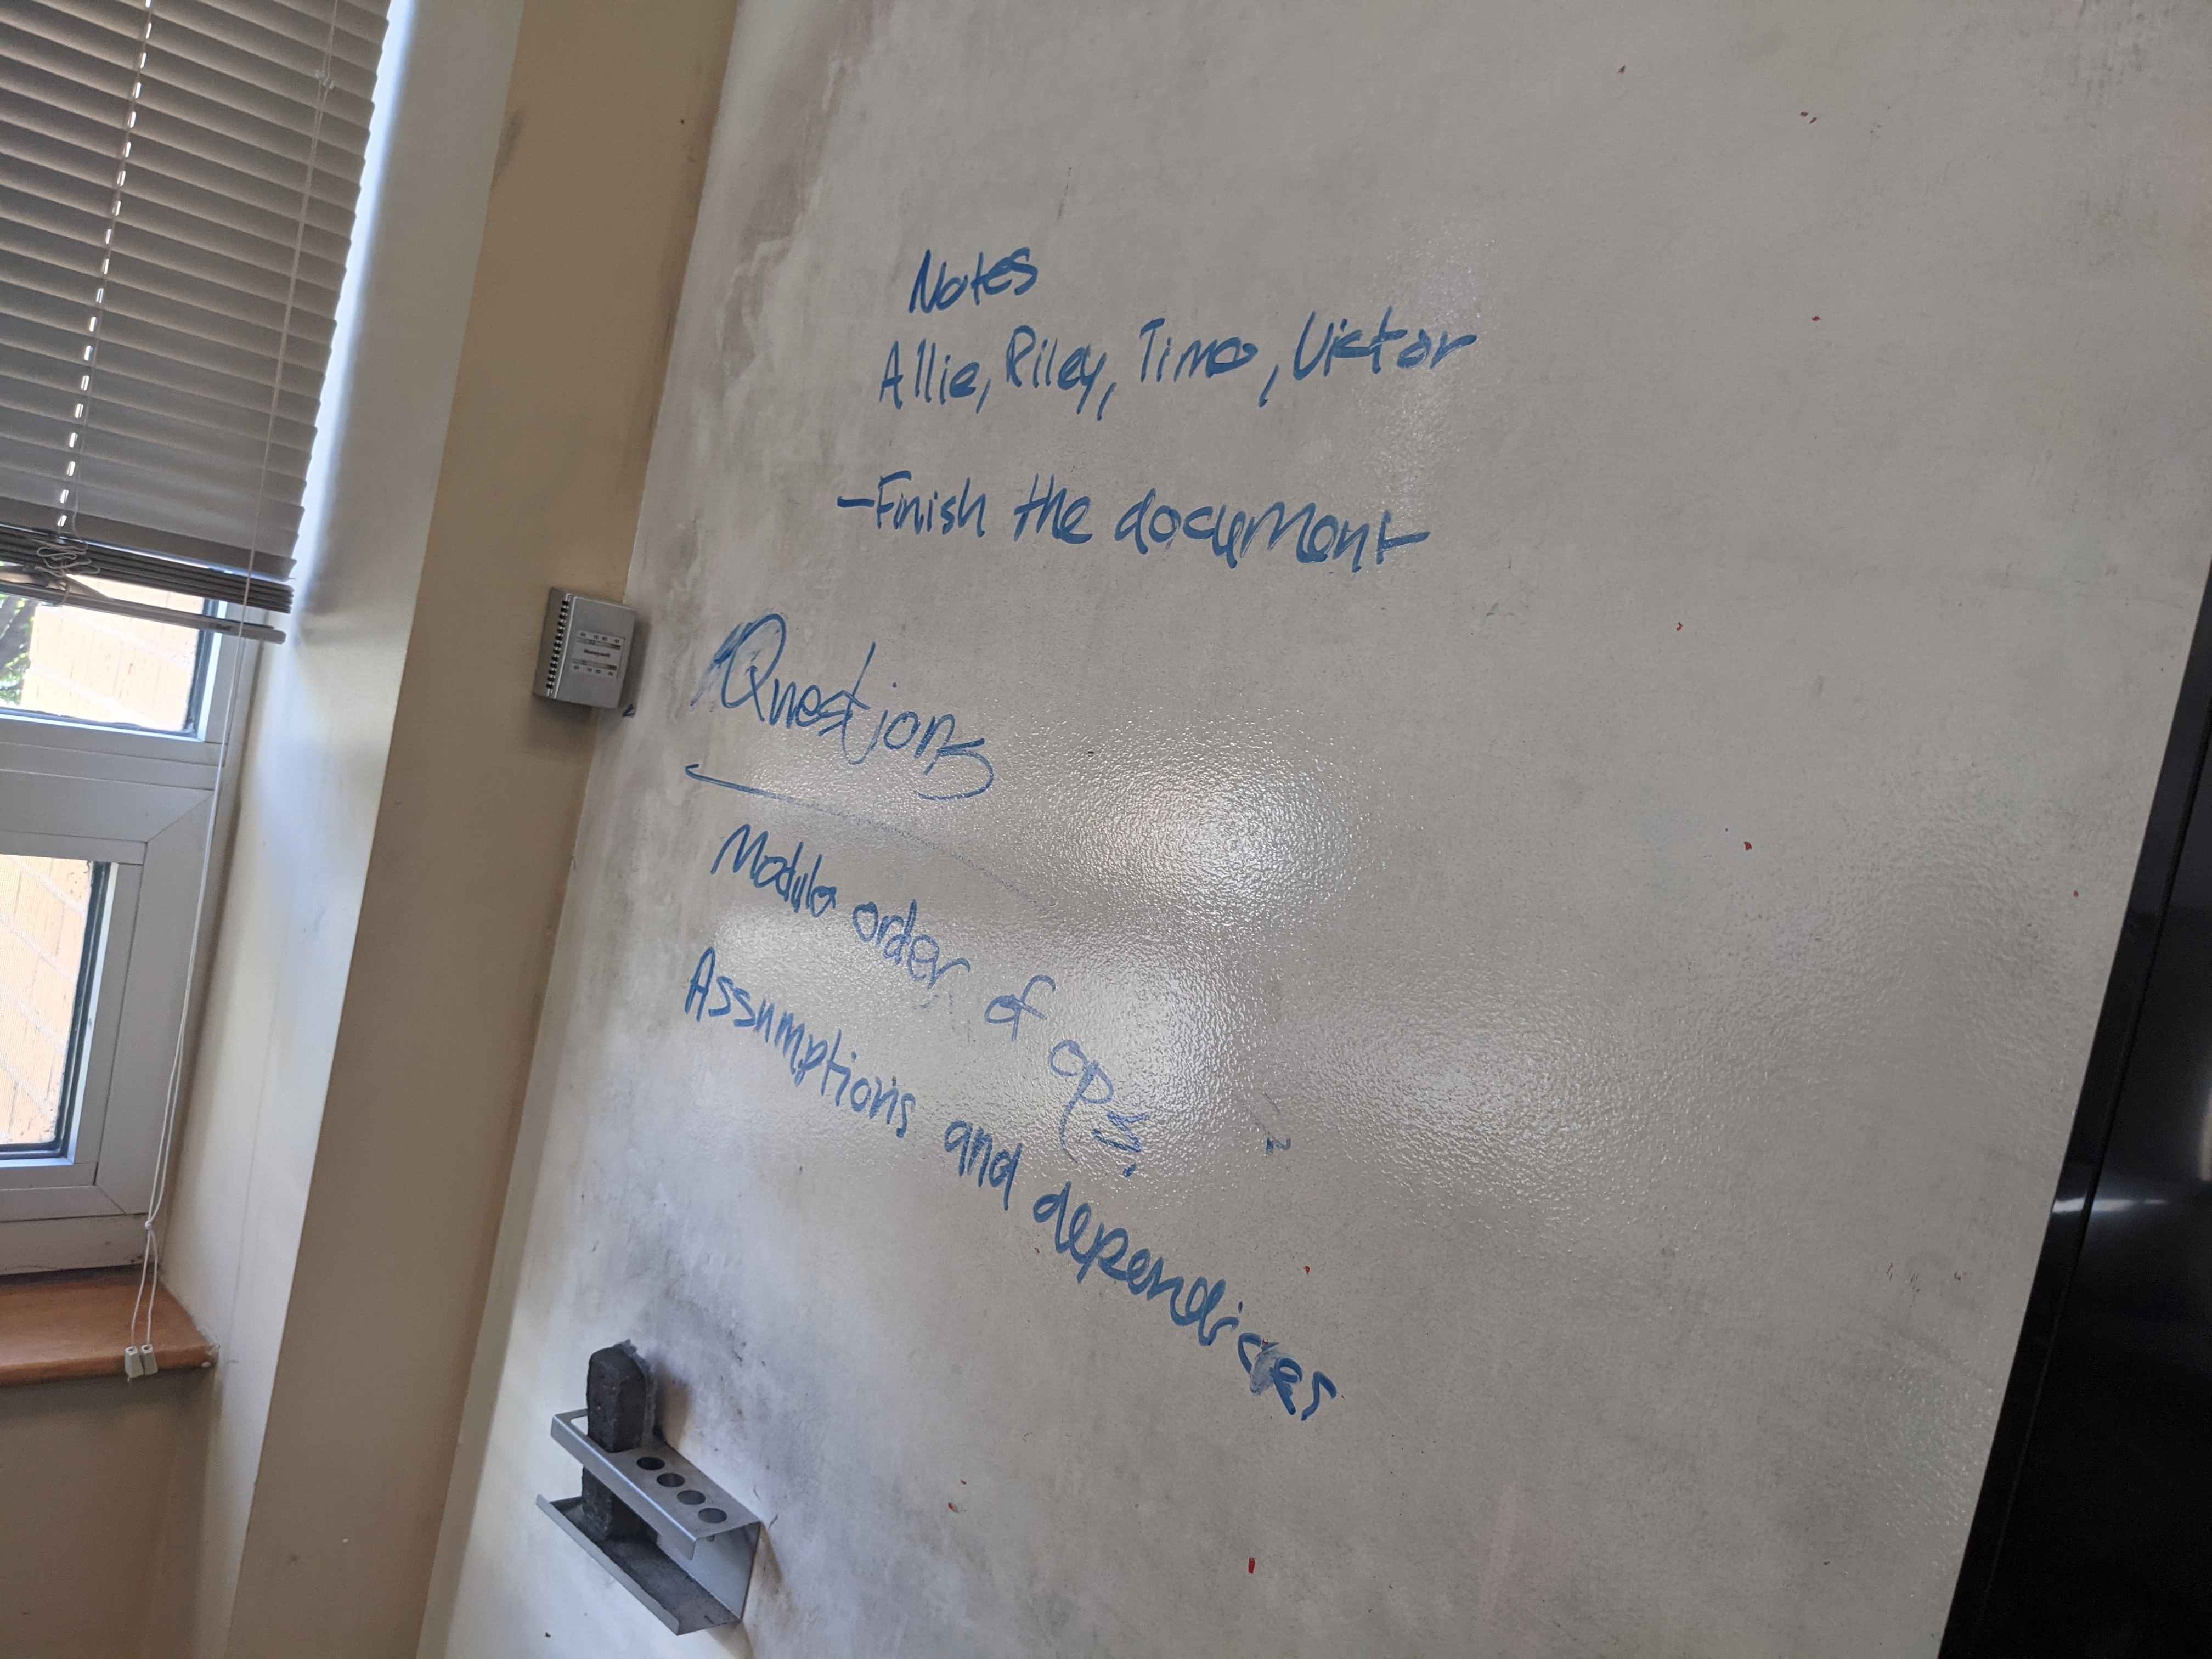 Notes
Allie, Riley, Timo, Victor
-Finish the document
Questions
Modulo order of ops
Assumptions and dependicies
Honeywell